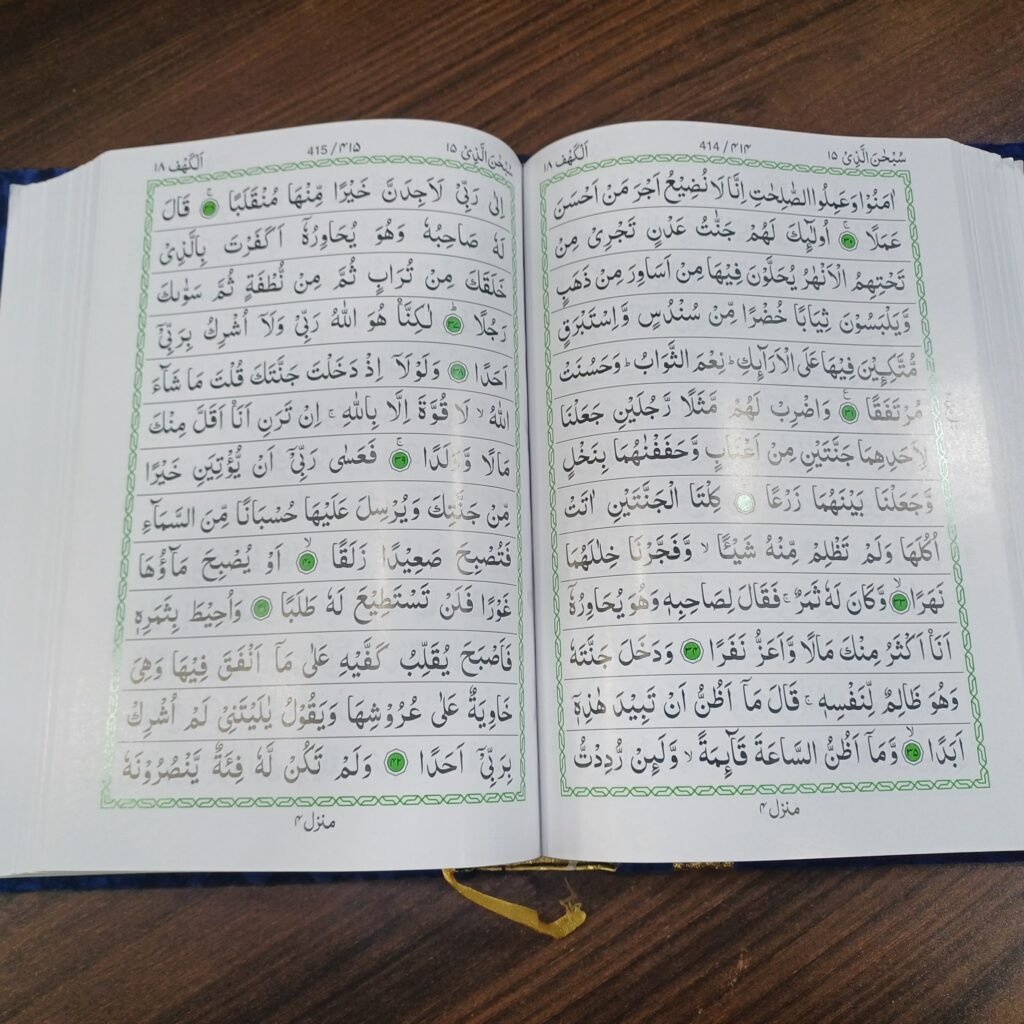 سُبْحٰنَ الَّذِیْۤ ۱۵
414 / ۴۱۴
اَلْکَهْف ۱۸
اٰمَنُوْا وَعَمِلُوا الصّٰلِحٰتِ اِنَّا لَا نُضِیْعُ اَجْرَ مَنْ اَحْسَنَ
عَمَلًا ۚ ۳۰ اُولٰٓئِكَ لَهُمْ جَنّٰتُ عَدْنٍ تَجْرِیْ مِنْ
تَحْتِهِمُ الْاَنْهٰرُ یُحَلَّوْنَ فِیْهَا مِنْ اَسَاوِرَ مِنْ ذَهَبٍ
وَّیَلْبَسُوْنَ ثِیَابًا خُضْرًا مِّنْ سُنْدُسٍ وَّاِسْتَبْرَقٍ
مُّتَّكِـِٕیْنَ فِیْهَا عَلَی الْاَرَآئِكِ ؕ نِعْمَ الثَّوَابُ ؕ وَحَسُنَتْ
مُرْتَفَقًا ۠ ۳۱ وَاضْرِبْ لَهُمْ مَّثَلًا رَّجُلَیْنِ جَعَلْنَا
لِاَحَدِهِمَا جَنَّتَیْنِ مِنْ اَعْنَابٍ وَّحَفَفْنٰهُمَا بِنَخْلٍ
وَّجَعَلْنَا بَیْنَهُمَا زَرْعًا كِلْتَا الْجَنَّتَیْنِ اٰتَتْ
اُكُلَهَا وَلَمْ تَظْلِمْ مِّنْهُ شَیْـًٔا ۙ وَّفَجَّرْنَا خِلٰلَهُمَا
نَهَرًا ۙ ۳۳ وَّكَانَ لَهٗ ثَمَرٌ ۚ فَقَالَ لِصَاحِبِهٖ وَهُوَ یُحَاوِرُهٗۤ
اَنَا اَكْثَرُ مِنْكَ مَالًا وَّاَعَزُّ نَفَرًا ۳۴ وَدَخَلَ جَنَّتَهٗ
وَهُوَ ظَالِمٌ لِّنَفْسِهٖ ۚ قَالَ مَاۤ اَظُنُّ اَنْ تَبِیْدَ هٰذِهٖۤ
اَبَدًا ۙ ۳۵ وَّمَاۤ اَظُنُّ السَّاعَةَ قَآئِمَةً ۙ وَّلَئِنْ رُّدِدْتُّ
منزل ۴
سُبْحٰنَ الَّذِیْۤ ۱۵
415 / ۴۱۵
اَلْکَهْف ۱۸
اِلٰی رَبِّیْ لَاَجِدَنَّ خَیْرًا مِّنْهَا مُنْقَلَبًا ۚ ۳۶ قَالَ
لَهٗ صَاحِبُهٗ وَهُوَ یُحَاوِرُهٗۤ اَكَفَرْتَ بِالَّذِیْ
خَلَقَكَ مِنْ تُرَابٍ ثُمَّ مِنْ نُّطْفَةٍ ثُمَّ سَوّٰىكَ
رَجُلًا ؕ ۳۷ لٰكِنَّا۠ هُوَ اللّٰهُ رَبِّیْ وَلَاۤ اُشْرِكُ بِرَبِّیْۤ
اَحَدًا ۳۸ وَلَوْلَاۤ اِذْ دَخَلْتَ جَنَّتَكَ قُلْتَ مَا شَآءَ
اللّٰهُ ۙ لَا قُوَّةَ اِلَّا بِاللّٰهِ ۚ اِنْ تَرَنِ اَنَا اَقَلَّ مِنْكَ
مَالًا وَّوَلَدًا ۚ ۳۹ فَعَسٰی رَبِّیْۤ اَنْ یُّؤْتِیَنِ خَیْرًا
مِّنْ جَنَّتِكَ وَیُرْسِلَ عَلَیْهَا حُسْبَانًا مِّنَ السَّمَآءِ
فَتُصْبِحَ صَعِیْدًا زَلَقًا ۙ ۴۰ اَوْ یُصْبِحَ مَآؤُهَا
غَوْرًا فَلَنْ تَسْتَطِیْعَ لَهٗ طَلَبًا ۴۱ وَاُحِیْطَ بِثَمَرِهٖ
فَاَصْبَحَ یُقَلِّبُ كَفَّیْهِ عَلٰی مَاۤ اَنْفَقَ فِیْهَا وَهِیَ
خَاوِیَةٌ عَلٰی عُرُوْشِهَا وَیَقُوْلُ یٰلَیْتَنِیْ لَمْ اُشْرِكْ
بِرَبِّیْۤ اَحَدًا ۴۲ وَلَمْ تَكُنْ لَّهٗ فِئَةٌ یَّنْصُرُوْنَهٗ
منزل ۴